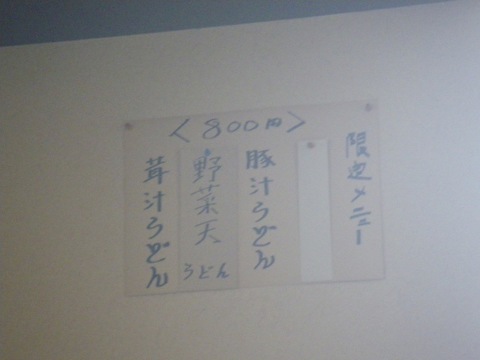 限定メニュー
〈800円〉
豚汁うどん
野菜天うどん
茸汁うどん